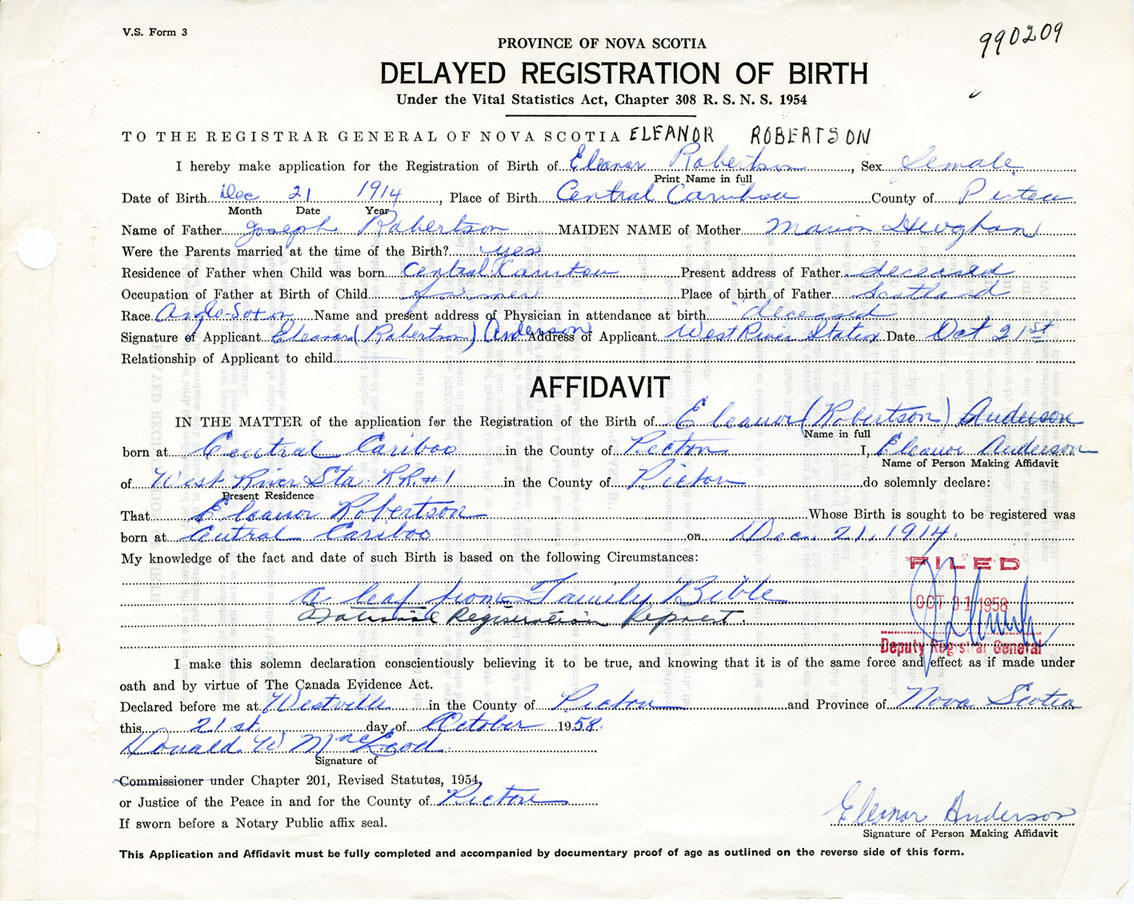 V.S. Form 3
990209
PROVINCE OF NOVA SCOTIA
DELAYED REGISTRATION OF BIRTH
Under the Vital Statistics Act, Chapter 308 R. S. N. S. 1954
TO THE REGISTRAR GENERAL OF NOVA SCOTIA ELEANOR ROBERTSON
I hereby make application for the Registration of Birth of Eleanor Robertson, Sex female
Print Name in full
Date of Birth Dec 21 1914, Place of Birth Central Caribou County of Pictou
Month Date Year
Name of Father Joseph Robertson MAIDEN NAME of Mother Marion
Were the Parents married at the time of the Birth? yes
Residence of Father when Child was born Central Present address of Father deceased
Occupation of Father at Birth of Child farmer Place of birth of Father Scotland
Race Anglo-Soxon Name and present address of Physician in attendance at birth "deceased
Signature of Applicant Eleanor (Robertson) Anderson Address of Applicant West River Station Date Oct 21st
Relationship of Applicant to child
AFFIDAVIT
IN THE MATTER of the application for the Registration of the Birth of Eleanor (Robertson) Anderson
Name in full
born at Central Cariboo in the County of Picton I, Eleanor Anderson
Name of Person Making Affidavit
of West River Sta. R.R.#1 in the County of Picton do solemnly declare:
Present Residence
That Eleanor Robertson Whose Birth is sought to be registered was
born at Central Cariboo on Dec. 21, 1914.
My knowledge of the fact and date of such Birth is based on the following Circumstances:
a leaf from Family Bible
National Registration Reprint.
FILED
OCT 31 1958
Deputy Registrar General
I make this solemn declaration conscientiously believing it to be true, and knowing that it is of the same force and effect as if made under
oath and by virtue of The Canada Evidence Act.
Declared before me at Westville in the County of Picton and Province of Nova Scotia
this 21st. day of October 1958.
Donald W MacLeod
Signature of
Commissioner under Chapter 201, Revised Statutes, 1954,
or Justice of the Peace in and for the County of Picton
If sworn before a Notary Public affix seal.
Eleanor Anderson
Signature of Person Making Affidavit
This Application and Affidavit must be fully completed and accompanied by documentary proof of age as outlined on the reverse side of this form.